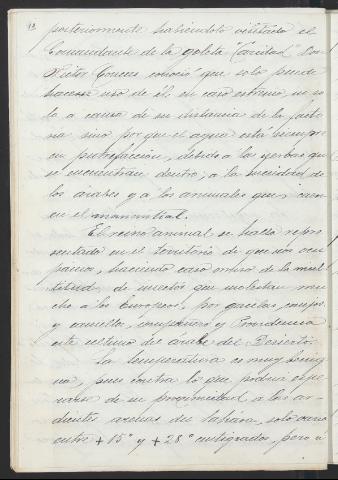 12
posteriormente habiendolo visitado el
Comandante de la goleta "Caridad" Don
Victor Concas conoció que solo puede
hacerse uso de él en caso estremo no so
lo a causa de su distancia de la facto
ria sino por que el agua está siempre
en putrefaccion, debido a las yerbas que
se encuentran dentro, a la suciedad de
los árabes y a los animales que caen
en el manantial.
El reino animal se halla repre
sentado en el territorio de que nos ocu
pamos, haciendo caso omiso de la mul
titud de insectos que molestan mu
cho a los Europeos, por gacelas,
y camello, compañero y Providencia
este ultimo del árabe del Desierto.
La temperatura es muy benig
na, pues contra lo que podria espe
rarse de su proximidad a las ar
dientes arenas del Sahára, solo varia
entre +15° y +28° centigrados, pero á